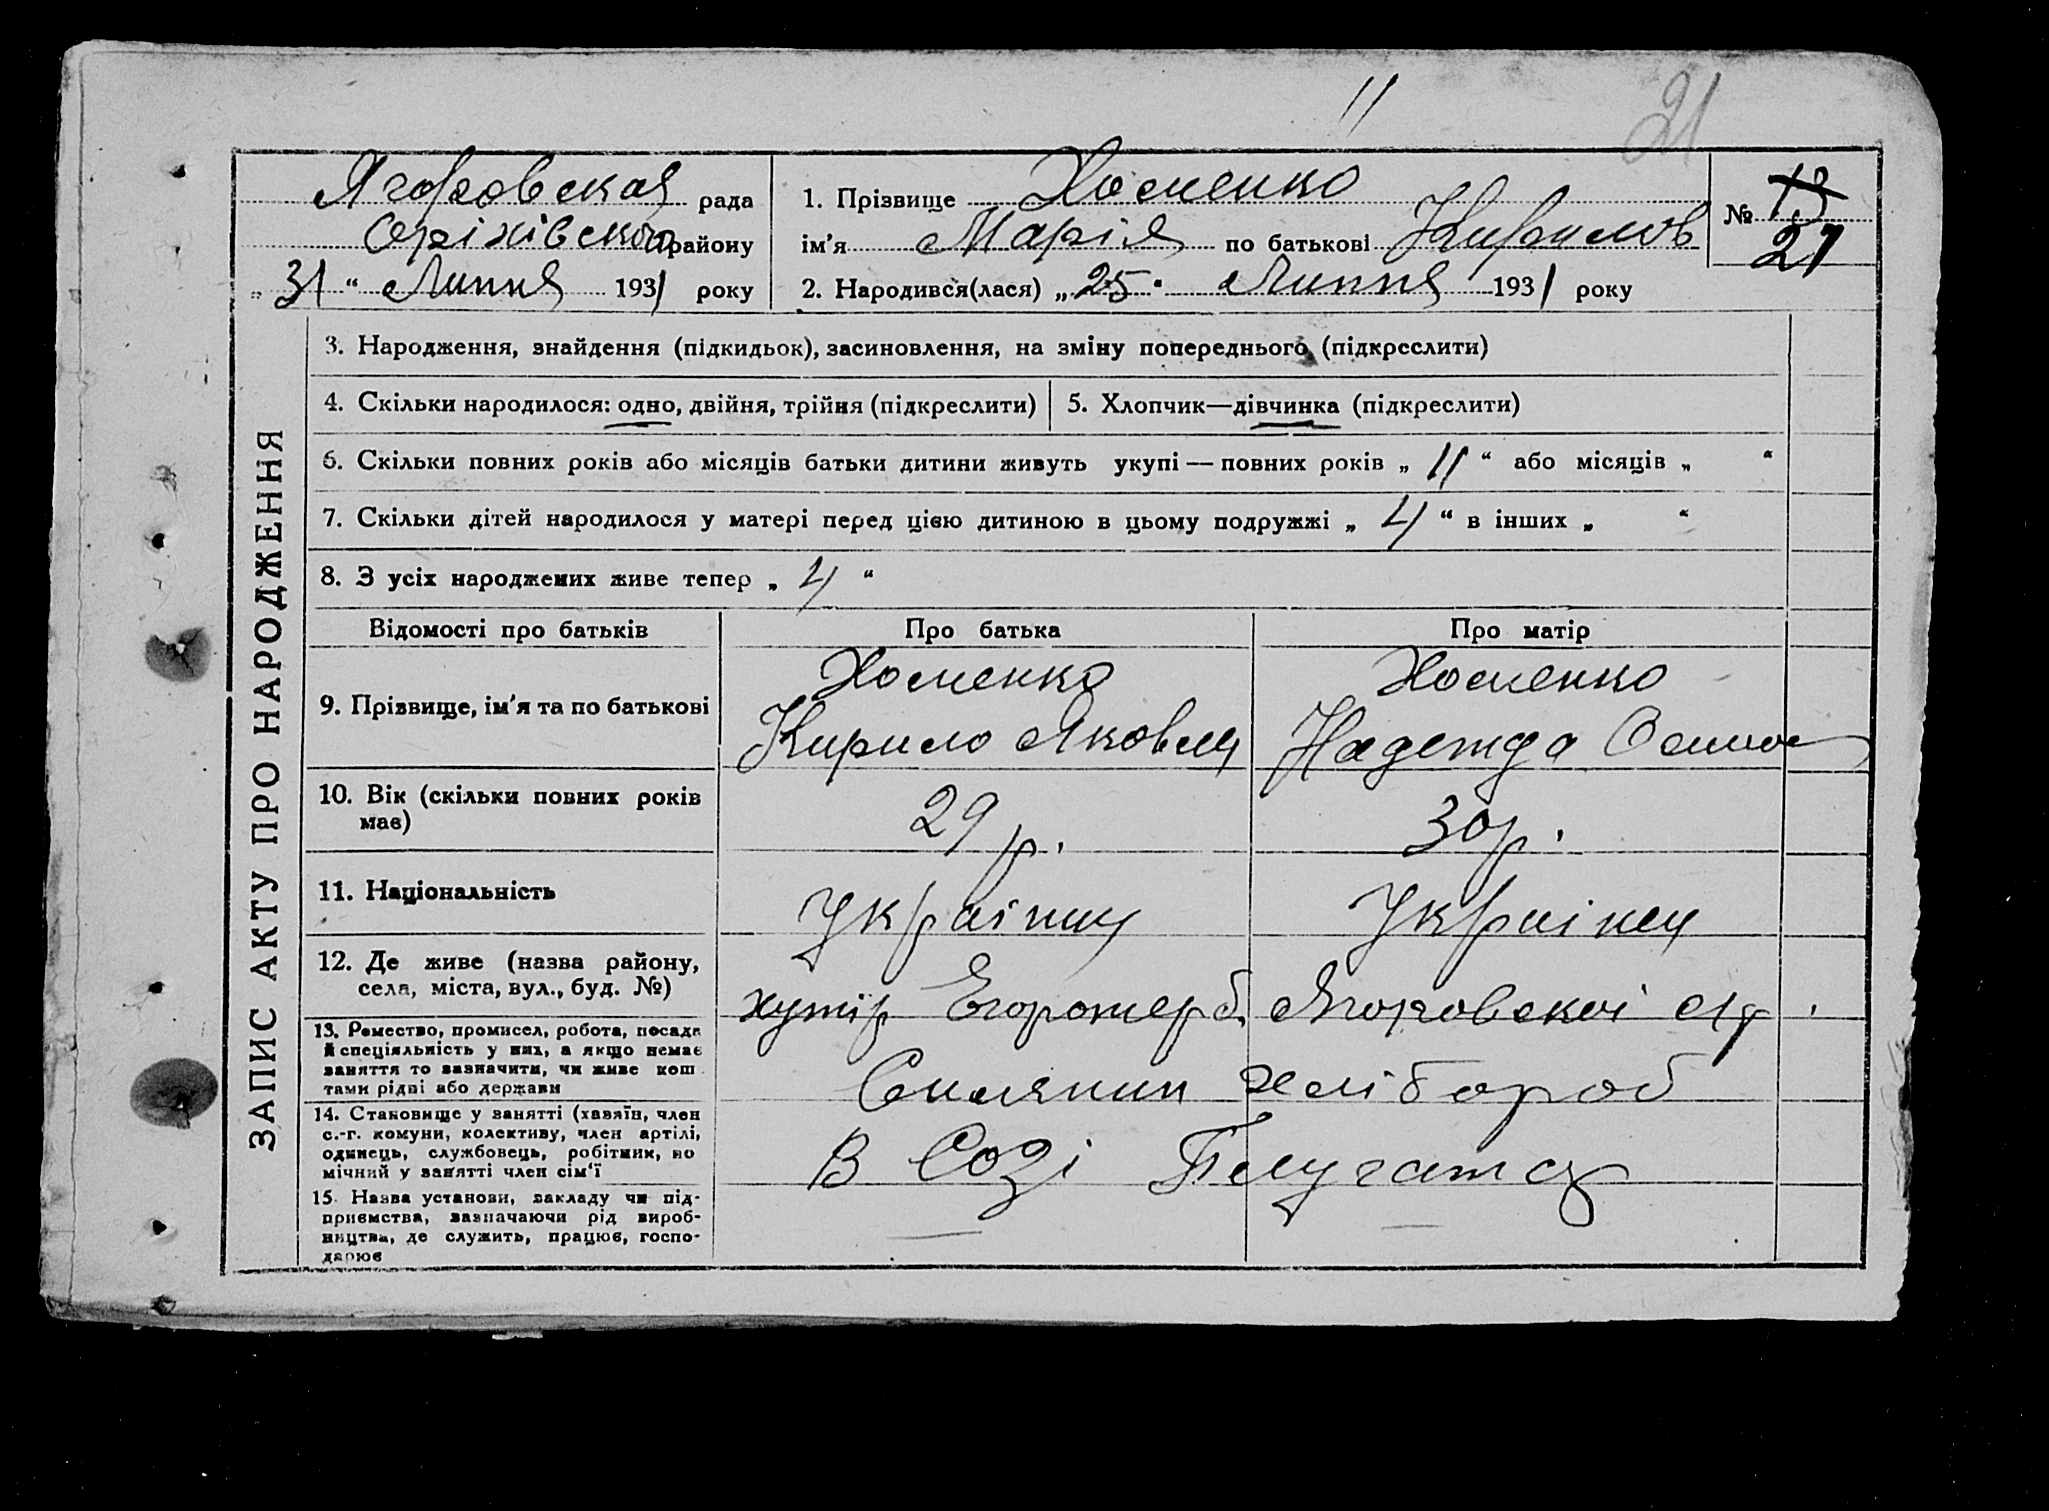 11
21
Ягоровская рада
Оріхівского району
„ 31 “ Липня 1931 року
1. Прізвище Хоменко
ім'я Марія по батькові Кирилов
2. Народився(лася) „ 25 “ Липня 1931 року
№ 13
21
ЗАПИС АКТУ ПРО НАРОДЖЕННЯ
3. Народження, знайдення (підкидьок), засиновлення, на зміну попереднього (підкреслити)
4. Скільки народилося: одно, двійня, трійня (підкреслити)
5. Хлопчик—дівчинка (підкреслити)
6. Скільки повних років або місяців батьки дитини живуть укупі — повних років „ 11 “ або місяців „ “
7. Скільки дітей народилося у матері перед цією дитиною в цьому подружжі „ 4 “ в інших „ “
8. З усіх народжених живе тепер „ 4 “
Відомості про батьків
Про батька
Про матір
9. Прізвище, ім'я та по батькові
Хоменко
Кирило Яковлев
Хоменко
Надежда
10. Вік (скільки повних років
має)
29 р.
30 р.
11. Національність
Українец
Українец
12. Де живе (назва району,
села, міста, вул., буд. №)
хутір
Ягоровскої с/р.
13. Ремество, промисел, робота, посада
й спеціяльність у них, а якщо немає
заняття то зазначити, чи живе кош
тами рідні або держави
Силянин хлібороб
14. Становище у занятті (хазяїн, член
с.-г. комуни, колективу, член артілі,
одинець, службовець, робітник, по
мічний у занятті член сім'ї
В Созі
15. Назва установи, закладу чи під-
приємства, зазначаючи рід вироб-
ництва, де служить, працює, госпо-
дарює